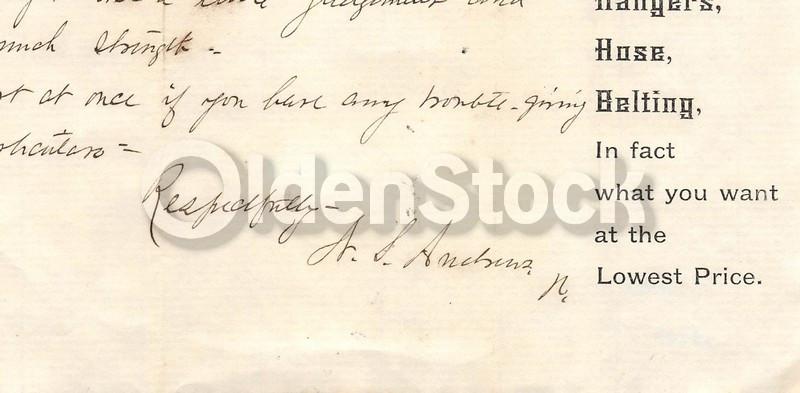 judgement and
much strength -
at once if you have any trouble - giving
Respectfully -
Andrews
Hangers,
Hose,
Belting,
In fact
what you want
at the
Lowest Price.
OldenStock